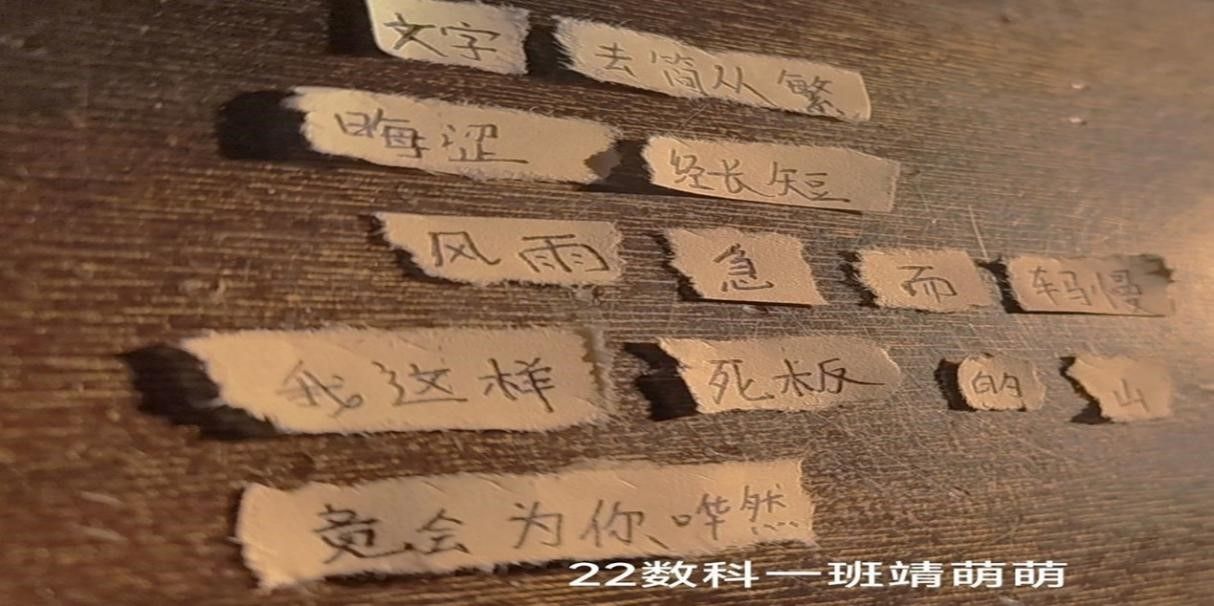 文字 去简从繁
晦涩 经长短
风雨 急 而 轻慢
我这样 死板 的 山
竟会为你哗然
22数科一班靖萌萌